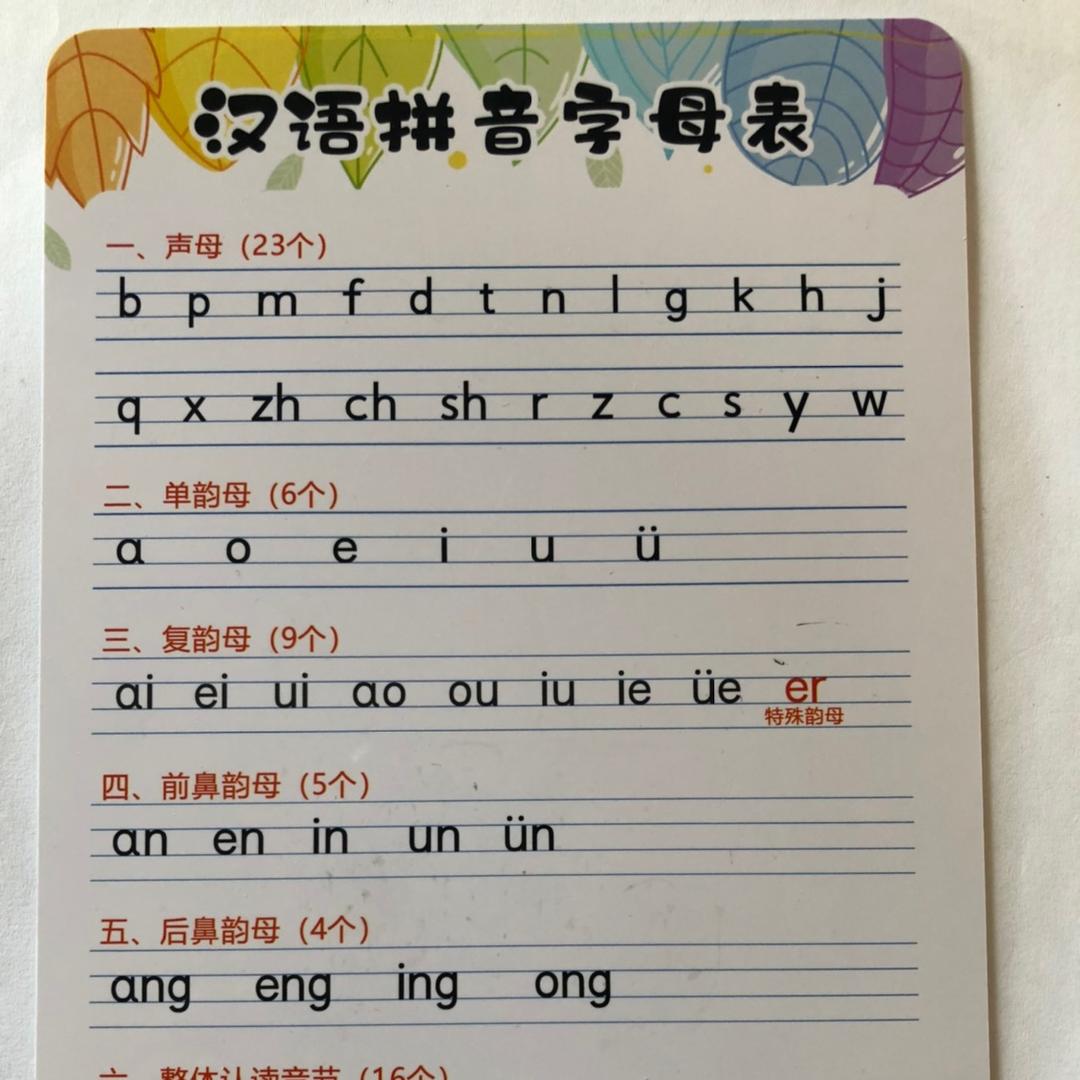 汉语拼音字母表
一、声母（23个）
b p m f d t n l g k h j
q x zh ch sh r z c s y w
二、单韵母（6个）
ɑ o e i u ü
三、复韵母（9个）
ɑi ei ui ɑo ou iu ie üe er
特殊韵母
四、前鼻韵母（5个）
ɑn en in un ün
五、后鼻韵母（4个）
ɑng eng ing ong
六、整体认读音节（16个）